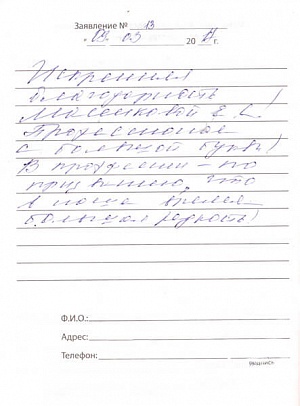 Заявление № 13
09 03 20 г.
Искренняя
благодарность
Масенковой Е.
Профессионал
с большой буквы!
В профессии - по
призванию, что
в наше время
большая редкость!
Ф.И.О.:
Адрес:
Телефон:
(подпись)